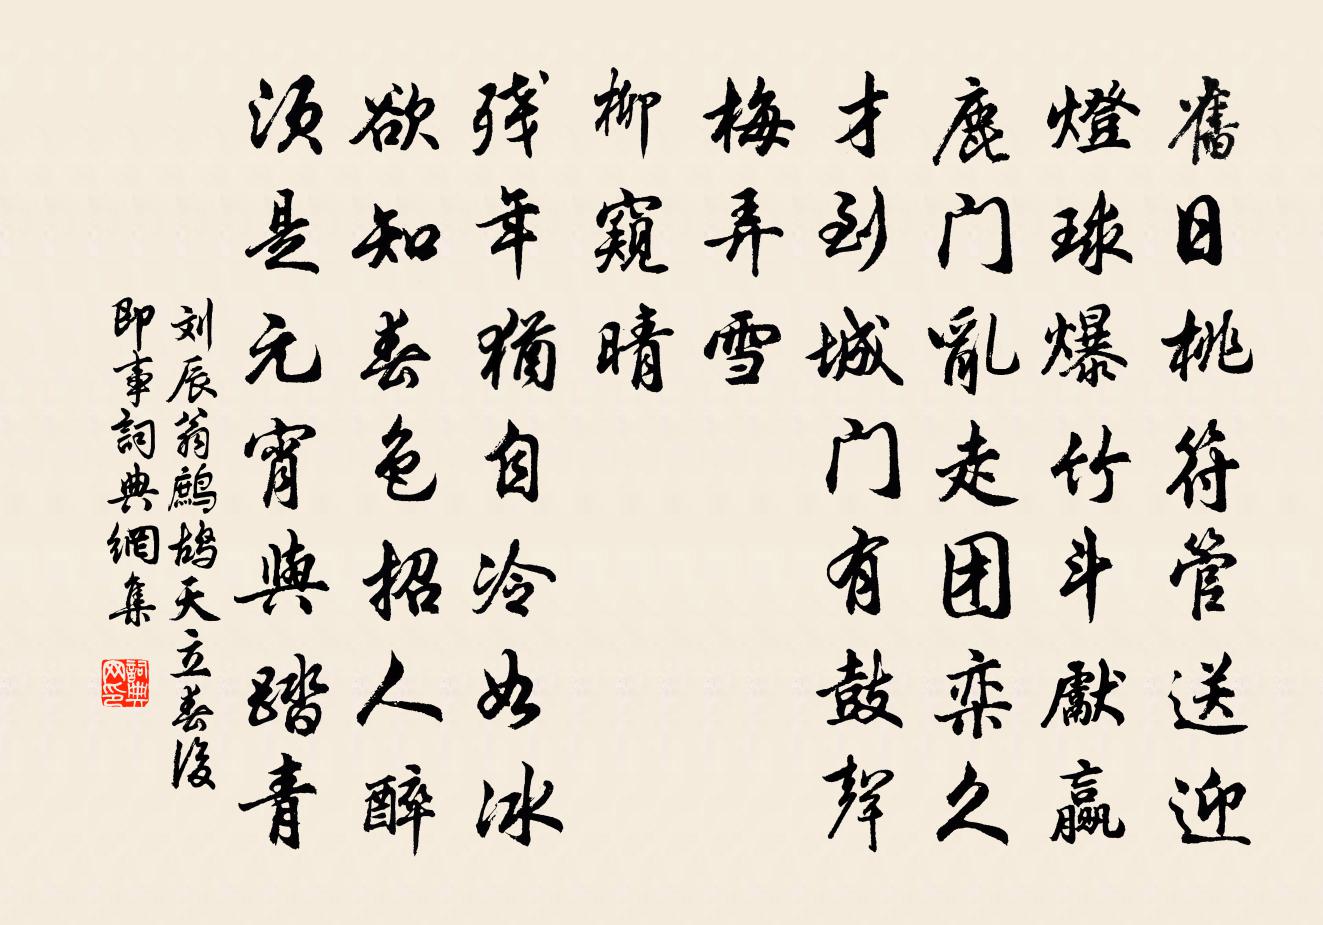 舊日桃符管送迎
燈球爆竹斗獻贏
鹿门亂走团栾久
才到城门有鼓聲
梅弄雪
柳窺晴
残年猶自冷如冰
欲知春色招人醉
須是元宵與踏青
刘辰翁鷓鴣天立春後
即事詞典網集
詞典网印